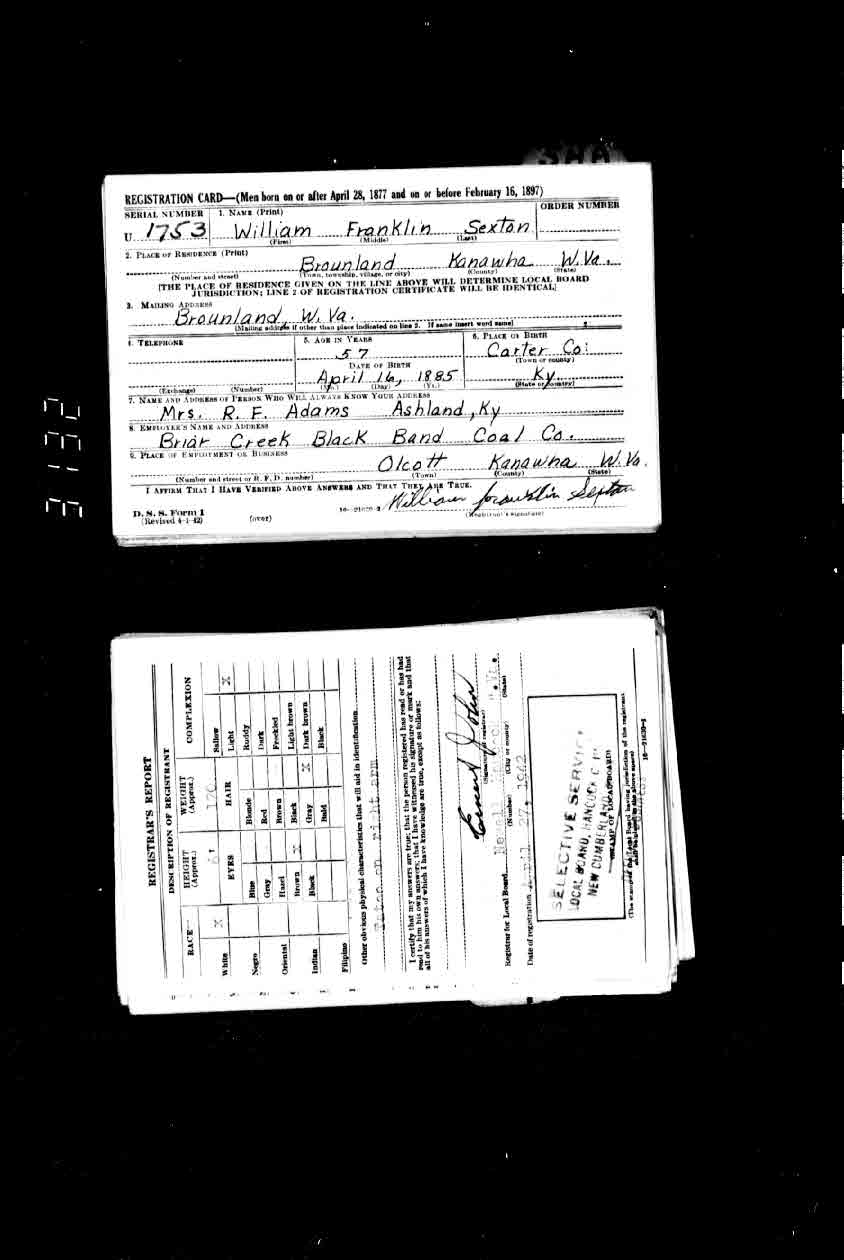 REGISTRATION CARD—(Men born on or after April 28, 1877 and on or before February 16, 1897)
SERIAL NUMBER 1. NAME (Print) ORDER NUMBER
U 1753 William Franklin Sexton
(First) (Middle) (Last)
2. PLACE OF RESIDENCE (Print)
Brounland Kanawha W. Va.
(Number and street) (Town, township, village, or city) (County) (State)
[THE PLACE OF RESIDENCE GIVEN ON THE LINE ABOVE WILL DETERMINE LOCAL BOARD
JURISDICTION; LINE 2 OF REGISTRATION CERTIFICATE WILL BE IDENTICAL]
3. MAILING ADDRESS
Brounland, W. Va.
[Mailing address if other than place indicated on line 2. If same insert word same]
4. TELEPHONE 5. AGE IN YEARS 6. PLACE OF BIRTH
57 Carter Co.
DATE OF BIRTH (Town or county)
April 16, 1885 Ky.
(Exchange) (Number) (Mo.) (Day) (Yr.) (State or country)
7. NAME AND ADDRESS OF PERSON WHO WILL ALWAYS KNOW YOUR ADDRESS
Mrs. R. F. Adams Ashland, Ky
8. EMPLOYER'S NAME AND ADDRESS
Briar Creek Black Band Coal Co.
9. PLACE OF EMPLOYMENT OR BUSINESS
Olcott Kanawha W. Va.
(Number and street or R. F. D. number) (Town) (County) (State)
I AFFIRM THAT I HAVE VERIFIED ABOVE ANSWERS AND THAT THEY ARE TRUE.
William Franklin Sexton
D. S. S. Form 1
(Revised 4-1-42) (over) 16—21630-2 (Registrant's signature)
REGISTRAR'S REPORT
DESCRIPTION OF REGISTRANT
RACE HEIGHT (Approx.) WEIGHT (Approx.) COMPLEXION
6' 170 Sallow
White X EYES HAIR Light X
Blue Blonde Ruddy
Negro Gray Red Dark
Oriental Hazel Brown Freckled
Brown X Black Light brown
Indian Black Gray X Dark brown
Filipino Bald Black
Other obvious physical characteristics that will aid in identification
Tatoo on right arm
I certify that my answers are true; that the person registered has read or has had
read to him his own answers; that I have witnessed his signature or mark and that
all of his answers of which I have knowledge are true, except as follows:
(Signature of registrar)
Registrar for Local Board
(Number) (City or county) (State)
Date of registration April 27, 1942
SELECTIVE SERVICE
LOCAL BOARD, HANCOCK
NEW CUMBERLAND
(STAMP OF LOCAL BOARD)
(The stamp of the Local Board having jurisdiction of the registrant
shall be placed in the above space)
16—21630-2